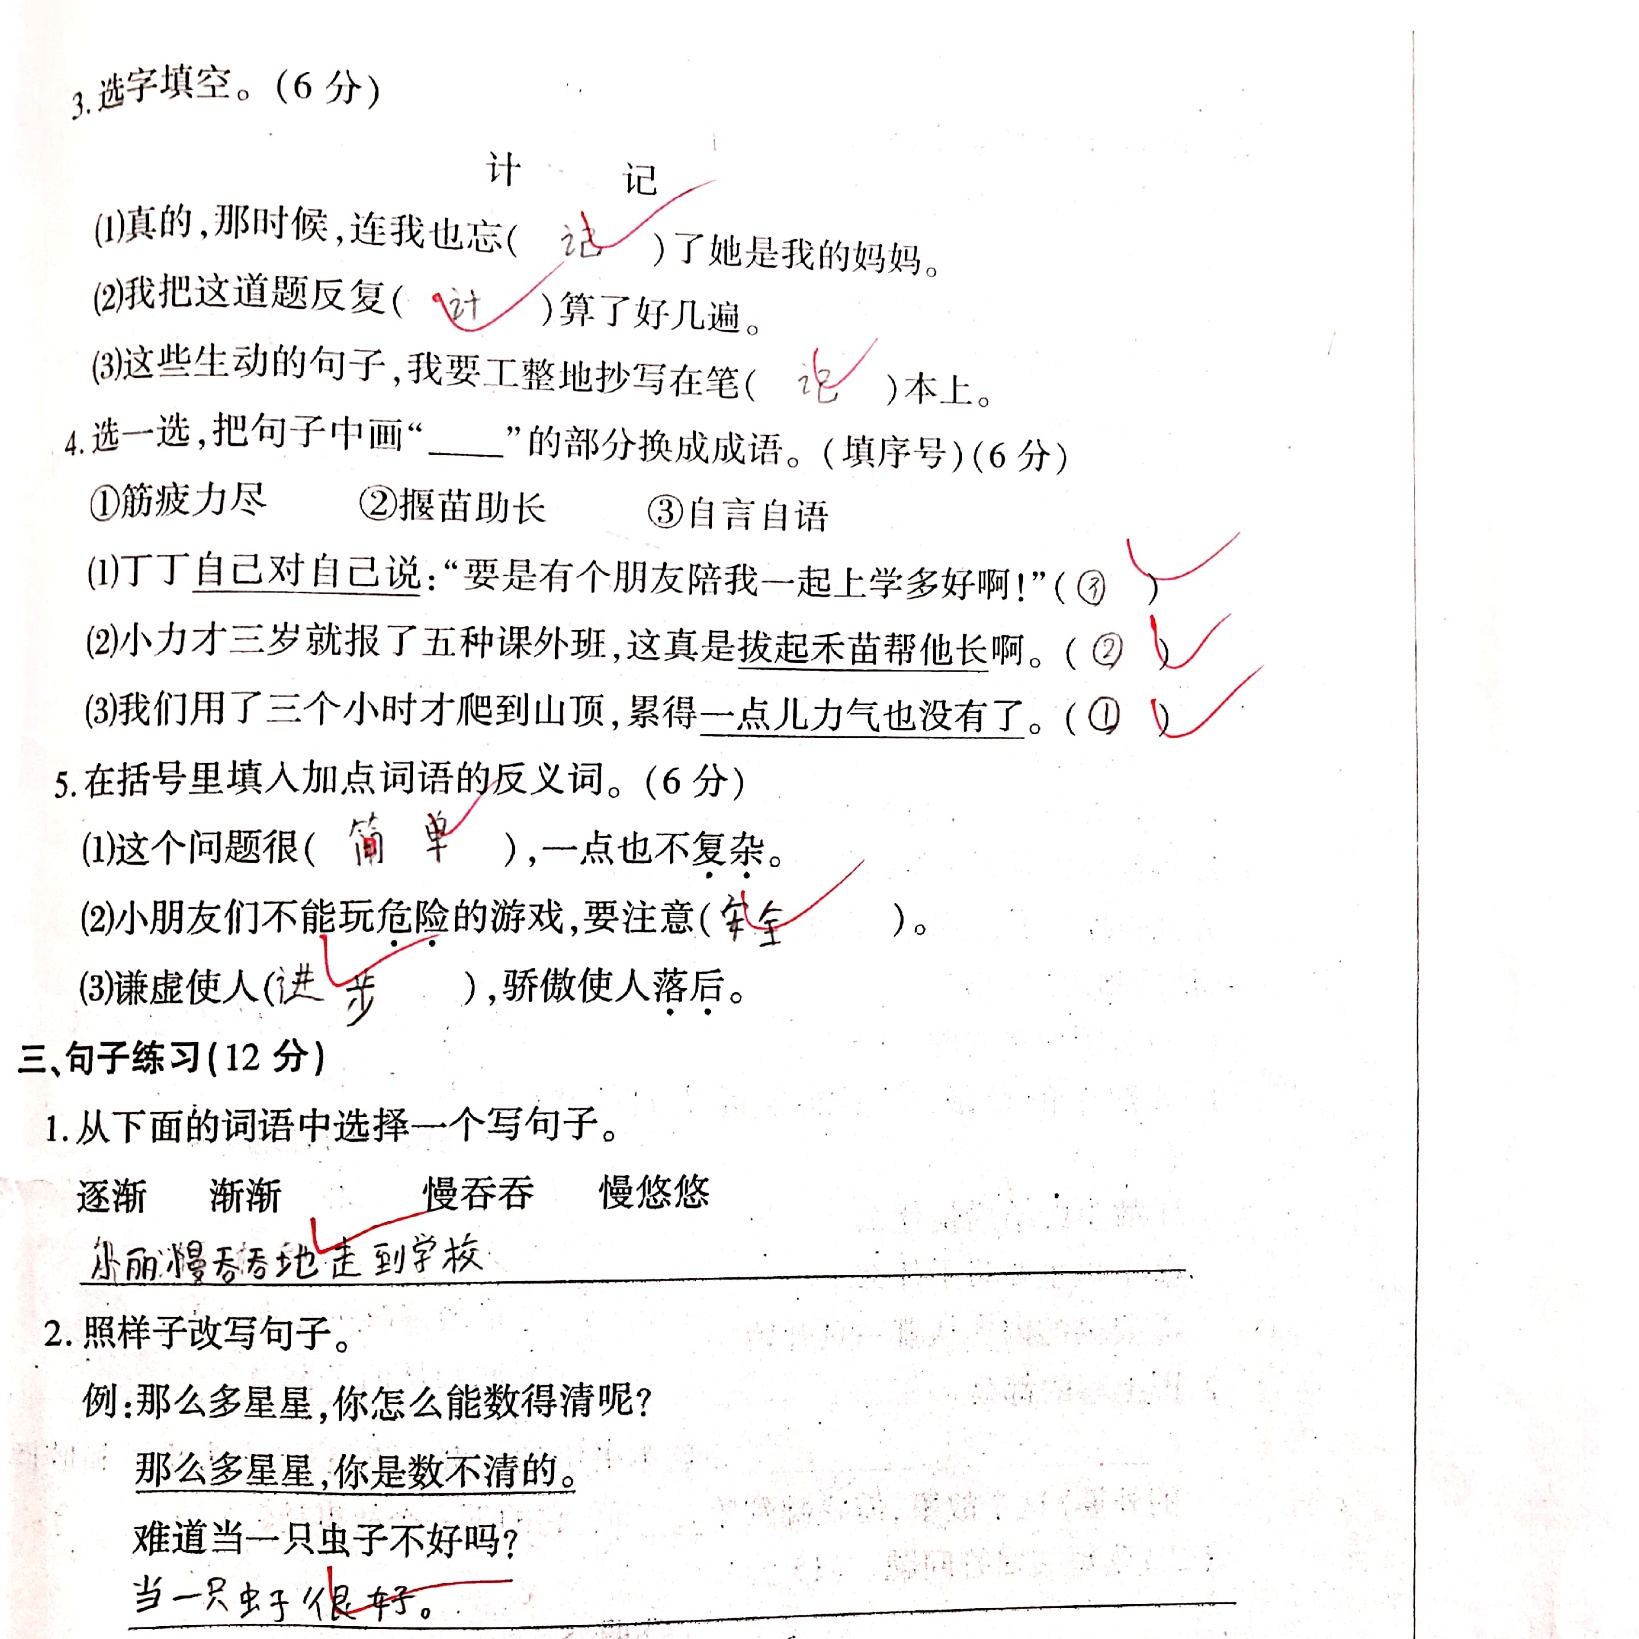 3.选字填空。(6 分)
计 记
⑴真的,那时候,连我也忘( 记 )了她是我的妈妈。
⑵我把这道题反复( 计 )算了好几遍。
⑶这些生动的句子,我要工整地抄写在笔( 记 )本上。
4.选一选,把句子中画“____”的部分换成成语。(填序号)(6 分)
①筋疲力尽 ②揠苗助长 ③自言自语
⑴丁丁自己对自己说:“要是有个朋友陪我一起上学多好啊!”( ③ )
⑵小力才三岁就报了五种课外班,这真是拔起禾苗帮他长啊。( ② )
⑶我们用了三个小时才爬到山顶,累得一点儿力气也没有了。( ① )
5.在括号里填入加点词语的反义词。(6 分)
⑴这个问题很( 简单 ),一点也不复杂。
⑵小朋友们不能玩危险的游戏,要注意( 安全 )。
⑶谦虚使人( 进步 ),骄傲使人落后。
三、句子练习(12 分)
1.从下面的词语中选择一个写句子。
逐渐 渐渐 慢吞吞 慢悠悠
小丽慢吞吞地走到学校
2.照样子改写句子。
例:那么多星星,你怎么能数得清呢?
那么多星星,你是数不清的。
难道当一只虫子不好吗?
当一只虫子很好。